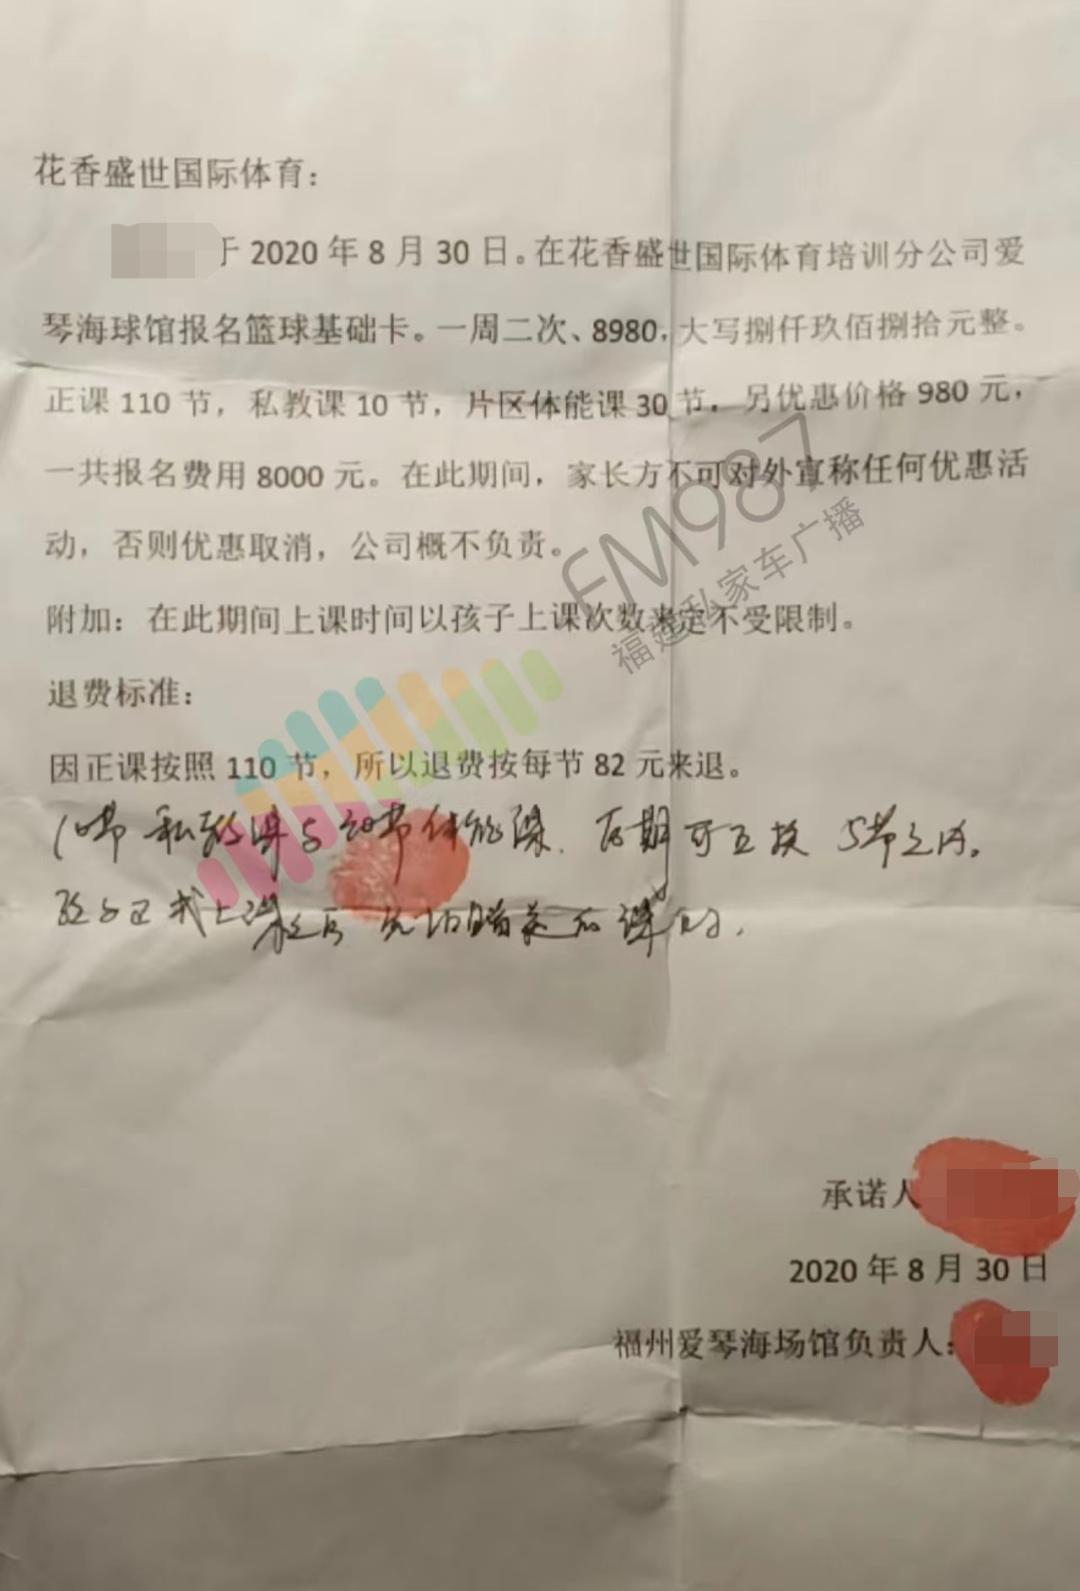 花香盛世国际体育：
于 2020 年 8 月 30 日。在花香盛世国际体育培训分公司爱
琴海球馆报名篮球基础卡。一周二次、8980，大写捌仟玖佰捌拾元整。
正课 110 节，私教课 10 节，片区体能课 30 节，另优惠价格 980 元，
一共报名费用 8000 元。在此期间，家长方不可对外宣称任何优惠活
动，否则优惠取消，公司概不负责。
附加：在此期间上课时间以孩子上课次数来定不受限制。
退费标准：
因正课按照 110 节，所以退费按每节 82 元来退。
10节 私教课与30节体能课. 后期可互换 5节之内。
正式上课之后
承诺人
2020 年 8 月 30 日
福州爱琴海场馆负责人：
FM987
福建私家车广播